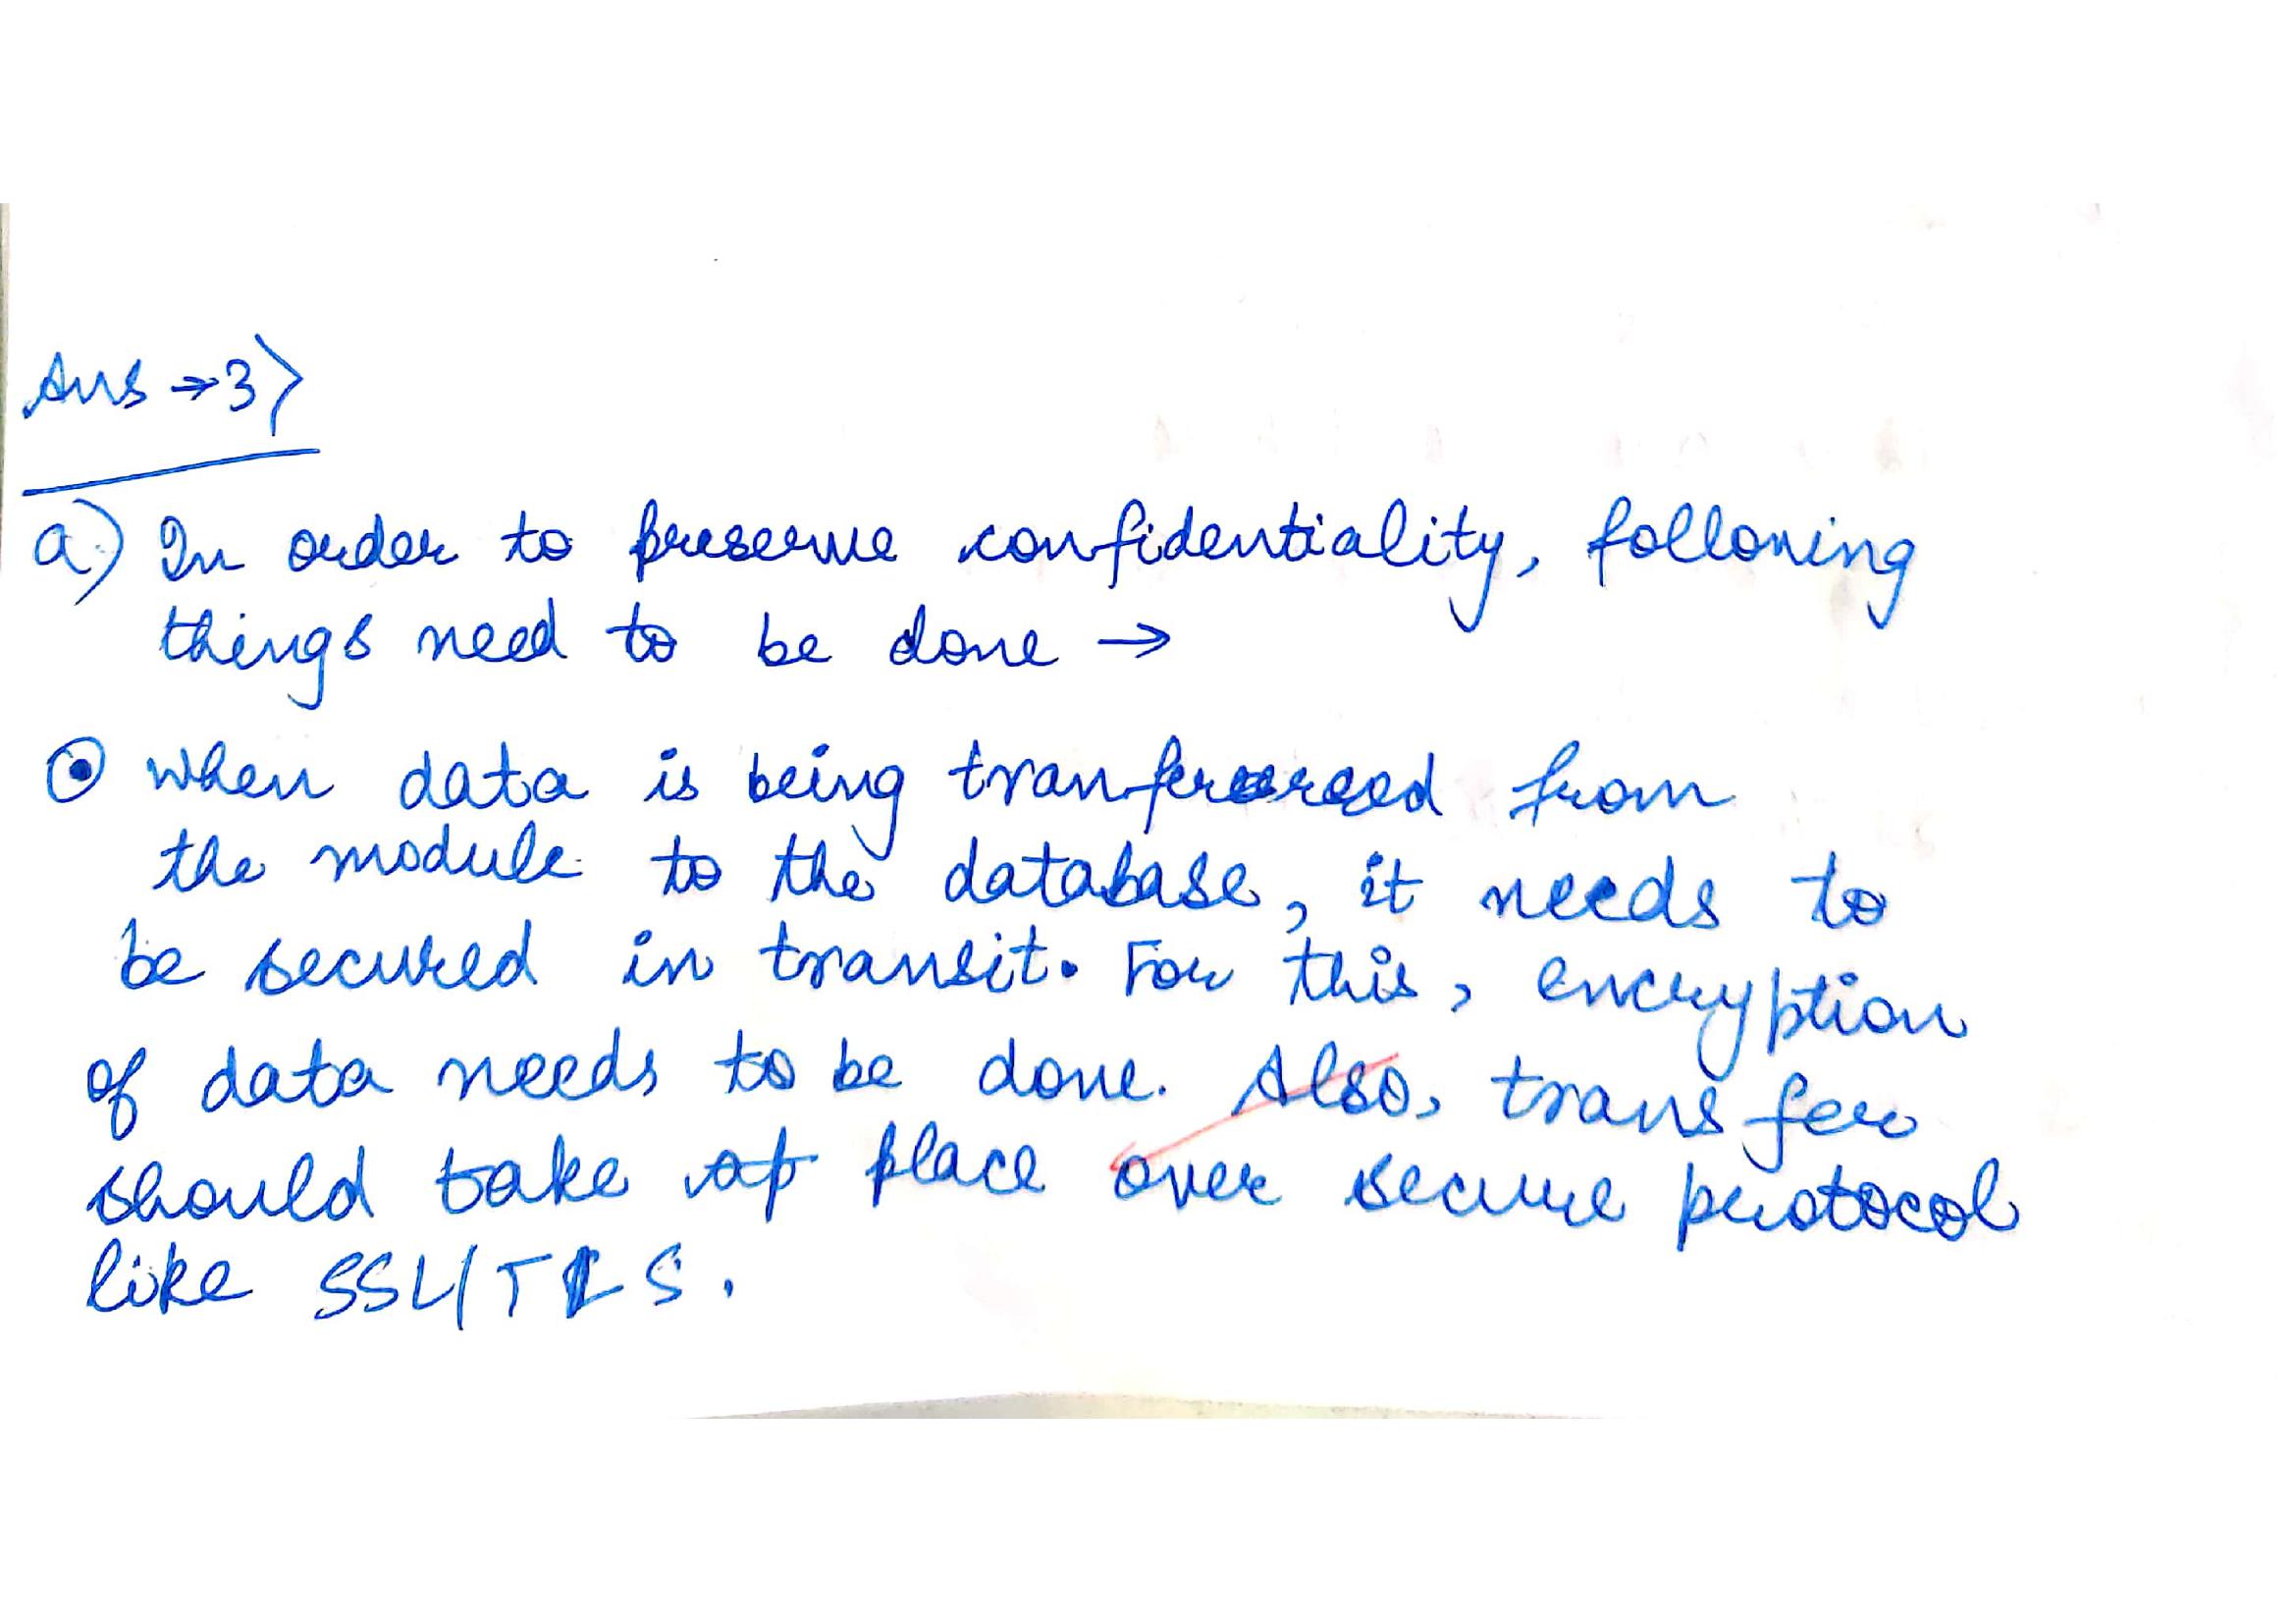 Ans → 3)
a) In order to preserve confidentiality, following
things need to be done →
⊙ When data is being tranferred from
the module to the database, it needs to
be secured in transit. For this, encryption
of data needs to be done. Also, transfer
should take place over secure protocol
like SSL/TLS.